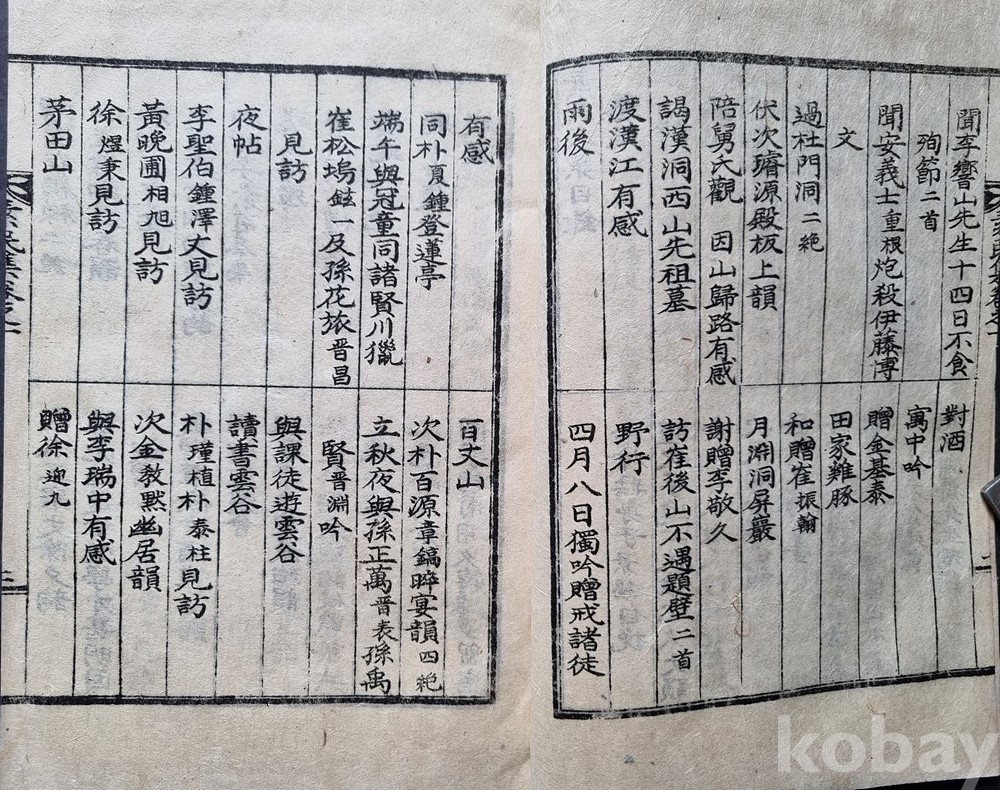 聞李響山先生十四日不食
殉節二首
聞安義士重根炮殺伊藤博
文
過杜門洞二絶
伏次璿源殿板上韻
陪舅氏觀 因山歸路有感
謁漢洞西山先祖墓
渡漢江有感
雨後
對酒
寓中吟
贈金基泰
田家雞豚
和贈崔振翰
月淵洞屏巖
謝贈李敬久
訪崔後山不遇題壁二首
野行
四月八日獨吟贈戒諸徒
二
有感
同朴夏鍾登蓮亭
端午與冠童同諸賢川獵
崔松塢鉉一及孫花旅晋昌
見訪
夜帖
李聖伯鍾澤丈見訪
黃晚圃相旭見訪
徐煜秉見訪
茅田山
百丈山
次朴百源章鎬晬宴韻四絶
立秋夜與孫正萬晋表孫禹
賢晋淵吟
與課徒遊雲谷
讀書雲谷
朴瑾植朴泰柱見訪
次金敎默幽居韻
與李瑞中有感
贈徐迎九
三
kobay